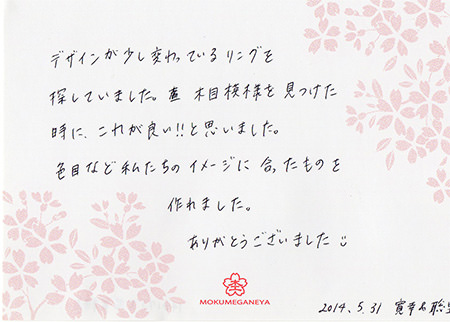 デザインが少し変わっているリングを
探していました。 木目模様を見つけた
時に、これが良い!!と思いました。
色目など私たちのイメージに合ったものを
作れました。
ありがとうございました
MOKUMEGANEYA
2014. 5. 31